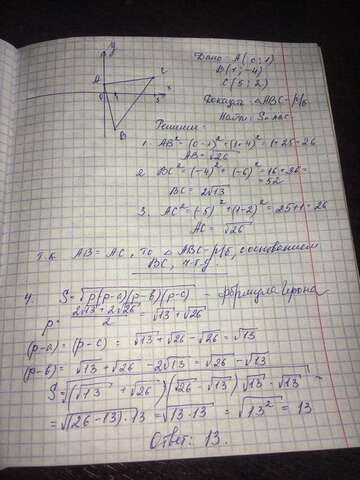 y
Дано: A(0; 1)
B(1; -4)
C(5; 2)
A
C
x
0
1
5
B
Доказать: △ABC - р/б
Найти: S
Решение:
1. AB² = (0-1)² + (1+4)² = 1+25=26
AB = √26
2. BC² = (-4)² + (-6)² = 16+36=
= 52
BC = 2√13
3. AC² = (-5)² + (1-2)² = 25+1=26
AC = √26
Т.к. AB = AC, то △ABC - р/б, с основанием
BC, ч.т.д.
4. S = √p(p-a)(p-b)(p-c) - формула Герона
p = (2√13 + 2√26)/2 = √13 + √26
(p-a) = (p-c) = √13 + √26 - √26 = √13
(p-b) = √13 + √26 - 2√13 = √26 - √13
S = √(√13 + √26)(√26 - √13)√13·√13 =
= √(26-13)·13 = √13·13 = √13² = 13
Ответ: 13.